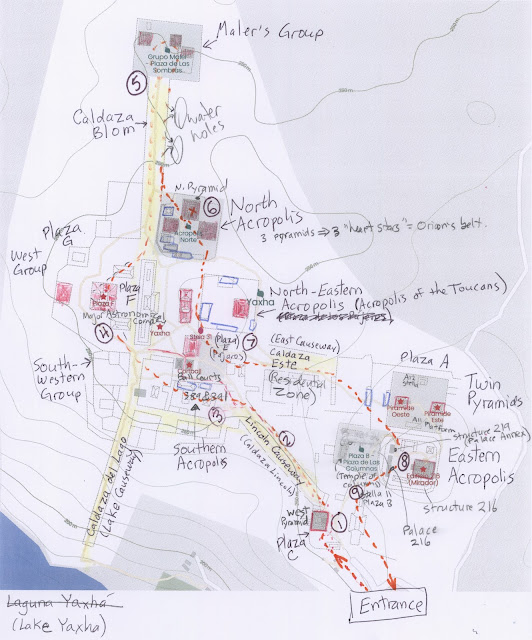 Maler's Group
Grupo Maler
- Plaza de Las
Sombras
5
Caldaza
Blom
water
holes
N. Pyramid
6
North
Acropolis
3 pyramids ⇒ 3 "heart stars" = Orion's belt.
Acropolis
Norte
Plaza
G
West
Group
Plaza
F
Plaza F
Major Astronomical
Complex
Yaxha
Yaxha
North-Eastern
Acropolis (Acropolis of the Toucans)
4
Stela 31
(Plaza)
E
Pajaros)
7
(East Causeway)
Caldaza
Este
(Residential
Zone)
Plaza A
Twin
Pyramids
Piramide
Oeste
Piramide
Este
Platform
South-
Western
Group
Ball Courts
3
Southern
Acropolis
2
Lincoln Causeway
(Caldaza Lincoln)
structure 219
(Palace Annex)
Eastern
Acropolis
8
Plaza B -
Plaza de Las
Columnas
(Temple of
columns)
(Mirador)
structure 216
Stella 11
Plaza B
9
Palace
216
Caldaza del Lago
(Lake Causeway)
West
Pyramid
1
Plaza
C
Entrance
Laguna Yaxhá
(Lake Yaxha)